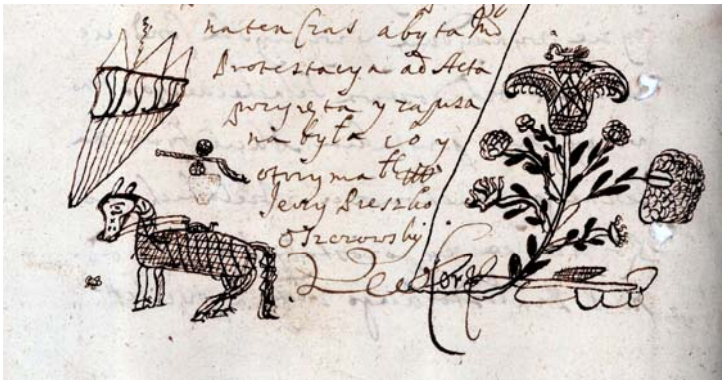 na ten czas a by ta
Protestacya ad Acta
przyięta y zapisa
na była co y
otrzymał
Jerzy